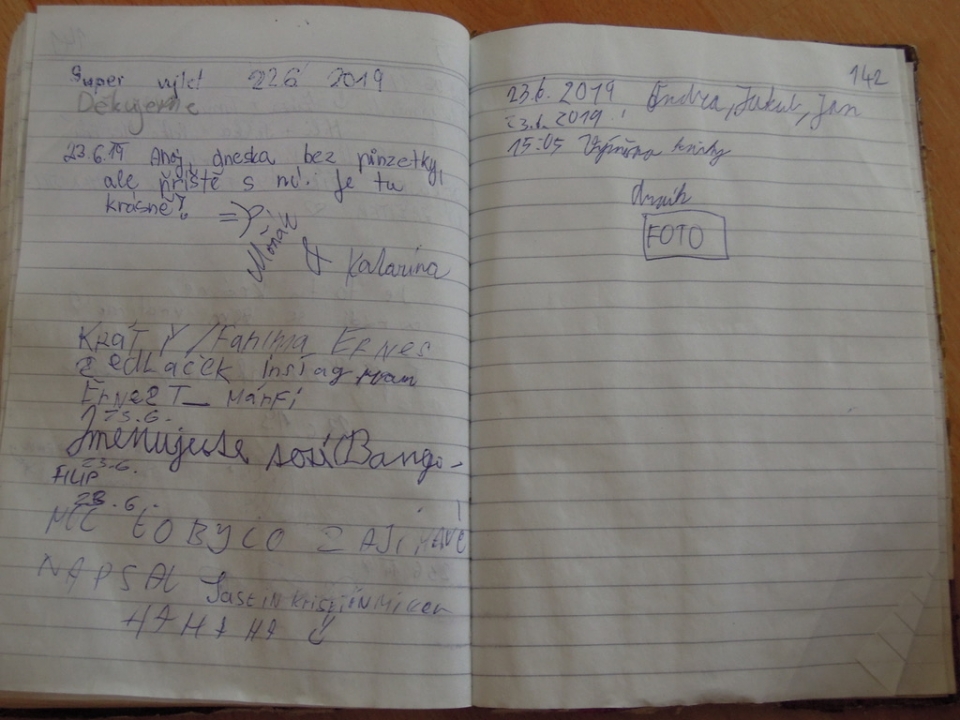 Super výlet 22.6 2019
Děkujeme
23.6.19 Ahoj, dneska bez pinzetky,
ale příště s ní. Je tu
krásně!
=)
& Katarina
KRÁTKÝ / FANINA ERNES
SEDLAČEK instagram
ERNEST_MANFI
23.6.
Jmenujuse, Bango
23.6.
FILIP
23.6.
MCC TO BYLO ZAJÍMAVÉ
NAPSAL
HAHAHA
142
23.6. 2019 Ondra, Jakub, Jan
23.6. 2019
15:05 Výměna knihy
deník
FOTO